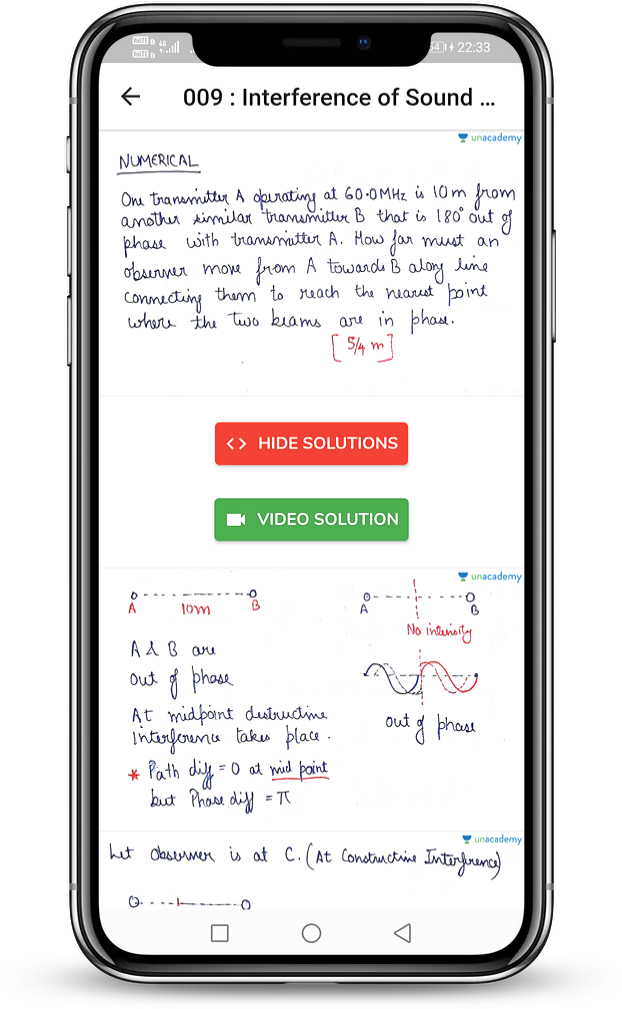 VoLTE
4G
VoLTE
54
22:33
009 : Interference of Sound ...
unacademy
NUMERICAL
One transmitter A operating at 60.0MHz is 10m from
another similar transmitter B that is 180° out of
phase with transmitter A. How far must an
observer move from A towards B along line
connecting them to reach the nearest point
where the two beams are in phase.
[5/4 m]
<> HIDE SOLUTIONS
VIDEO SOLUTION
unacademy
A 10m B
A & B are
out of phase
At midpoint destructive
interference takes place.
* Path diff = 0 at mid point
but Phase diff = π
A B
No intensity
out of phase
unacademy
Let observer is at C. (At Constructive Interference)